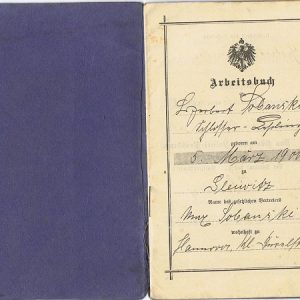 Arbeitsbuch
für
Herbert Sobanski
Schlosser-
geboren am
5. März 190
zu
Gleiwitz
Name des gesetzlichen Vertreters
Max Sobanski
wohnhaft zu
Hannover, Kl.